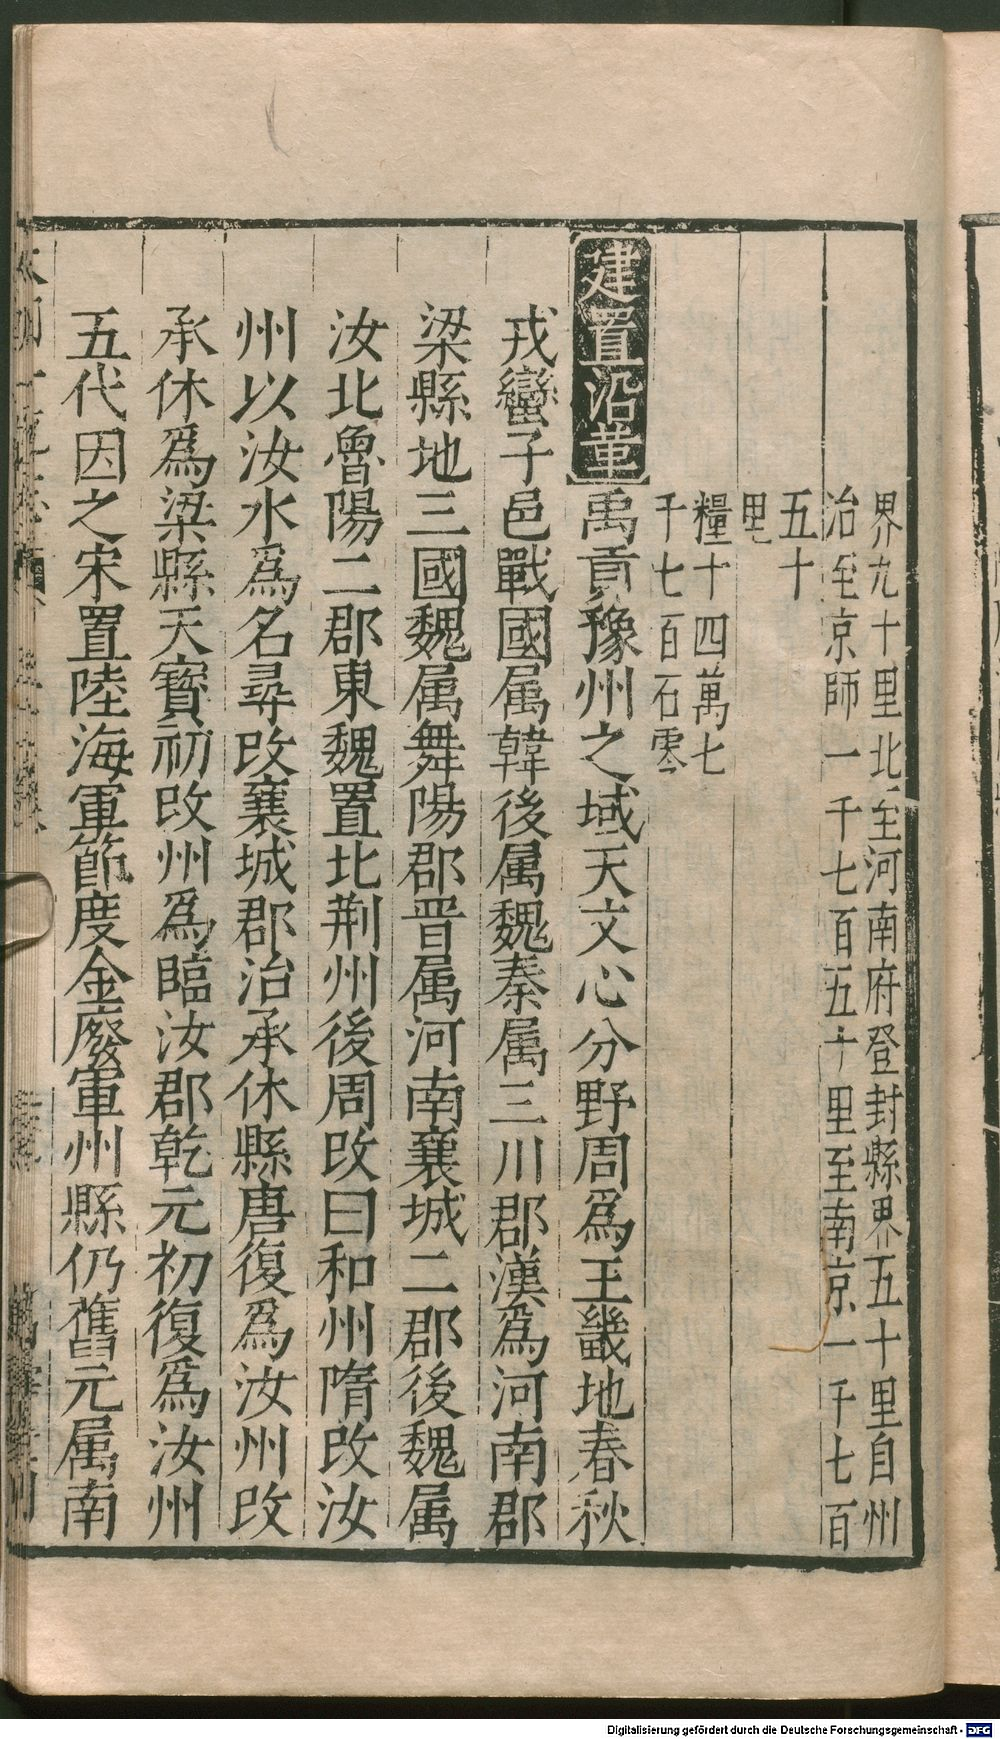 界九十里北至河南府登封縣界五十里自州
治至京師一千七百五十里至南京一千七百
五十
里
糧十四萬七
千七百石零
建置沿革
禹貢豫州之域天文心分野周為王畿地春秋
戎蠻子邑戰國属韓後属魏秦属三川郡漢為河南郡
梁縣地三國魏属舞陽郡晋属河南襄城二郡後魏属
汝北魯陽二郡東魏置北荆州後周改曰和州隋改汝
州以汝水為名尋改襄城郡治承休縣唐復為汝州改
承休為梁縣天寶初改州為臨汝郡乾元初復為汝州
五代因之宋置陸海軍節度金廢軍州縣仍舊元属南
Digitalisierung gefördert durch die Deutsche Forschungsgemeinschaft - DFG